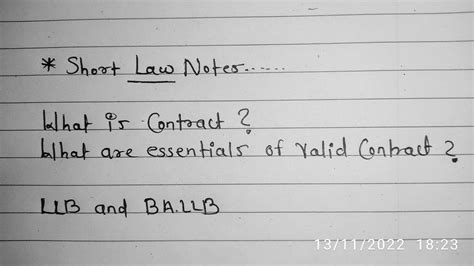 * Short Law Notes......
What is Contract ?
What are essentials of valid Contract ?
LLB and BA.LLB
13/11/2022 18:23